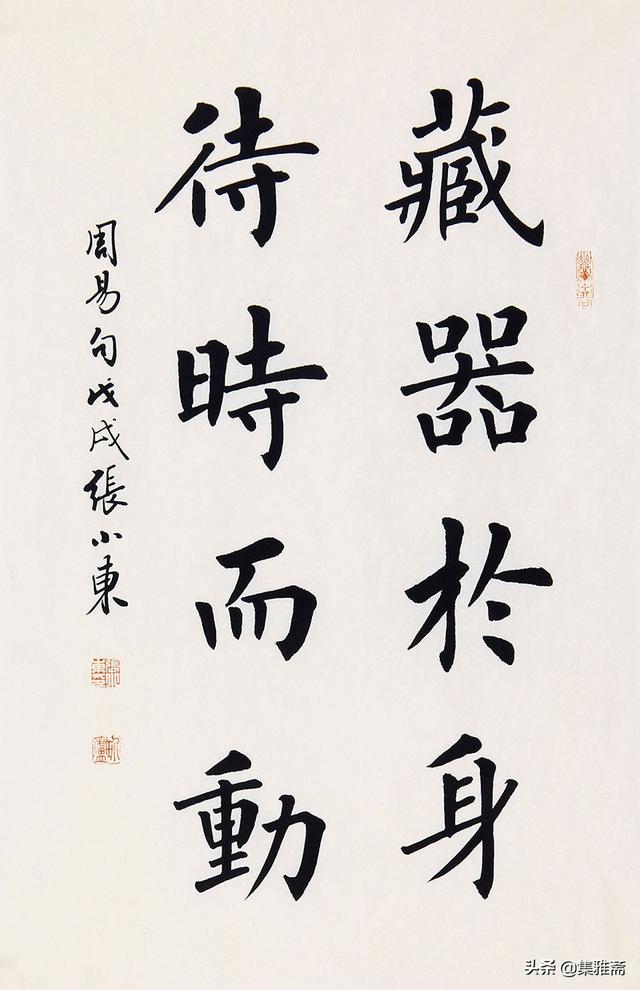 藏器於身
待時而動
周易句戊戌張小東
头条 @集雅斋